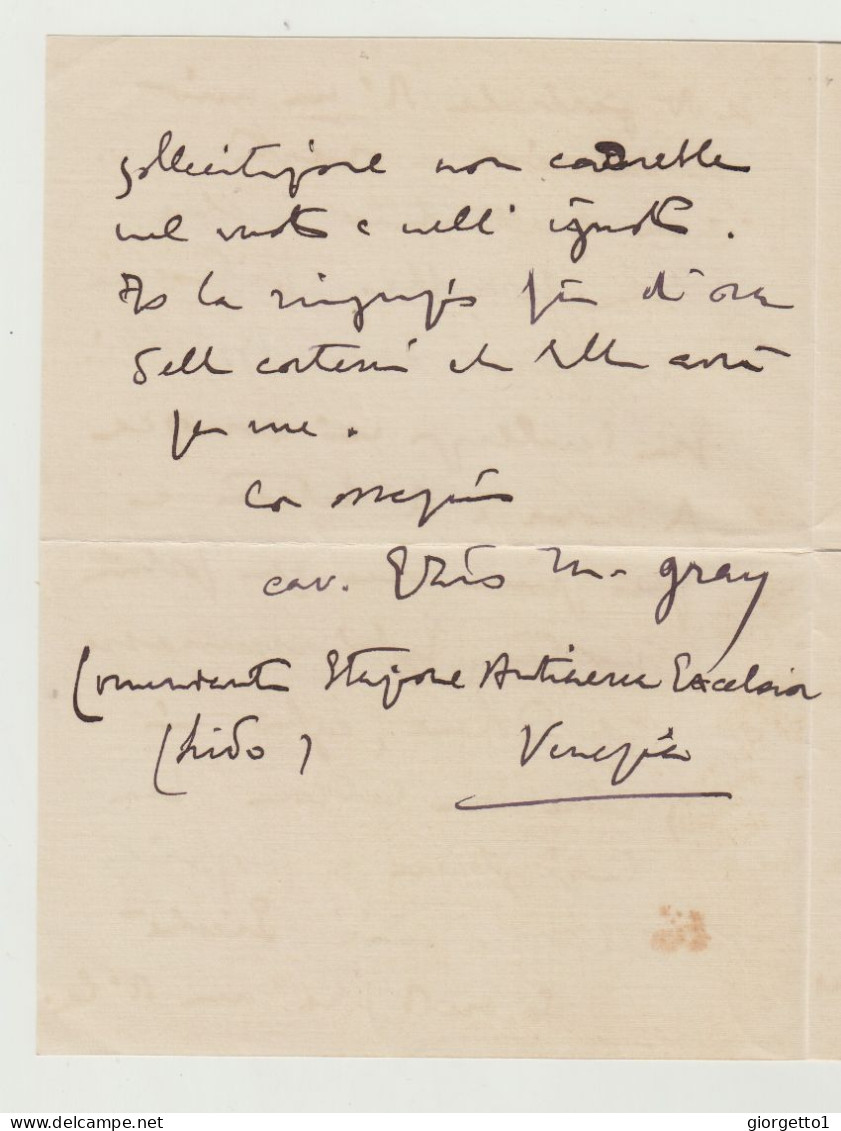 sollecitazione non cadrebbe
nel vuoto e nell' ignoto.
Io la ringrazio fin d'ora
della cortesia che Ella avrà
per me.
Con ossequio
cav. Ezio M. Gray
Comandante Stazione Antiaerea Excelsior
(Lido) Venezia
giorgetto1